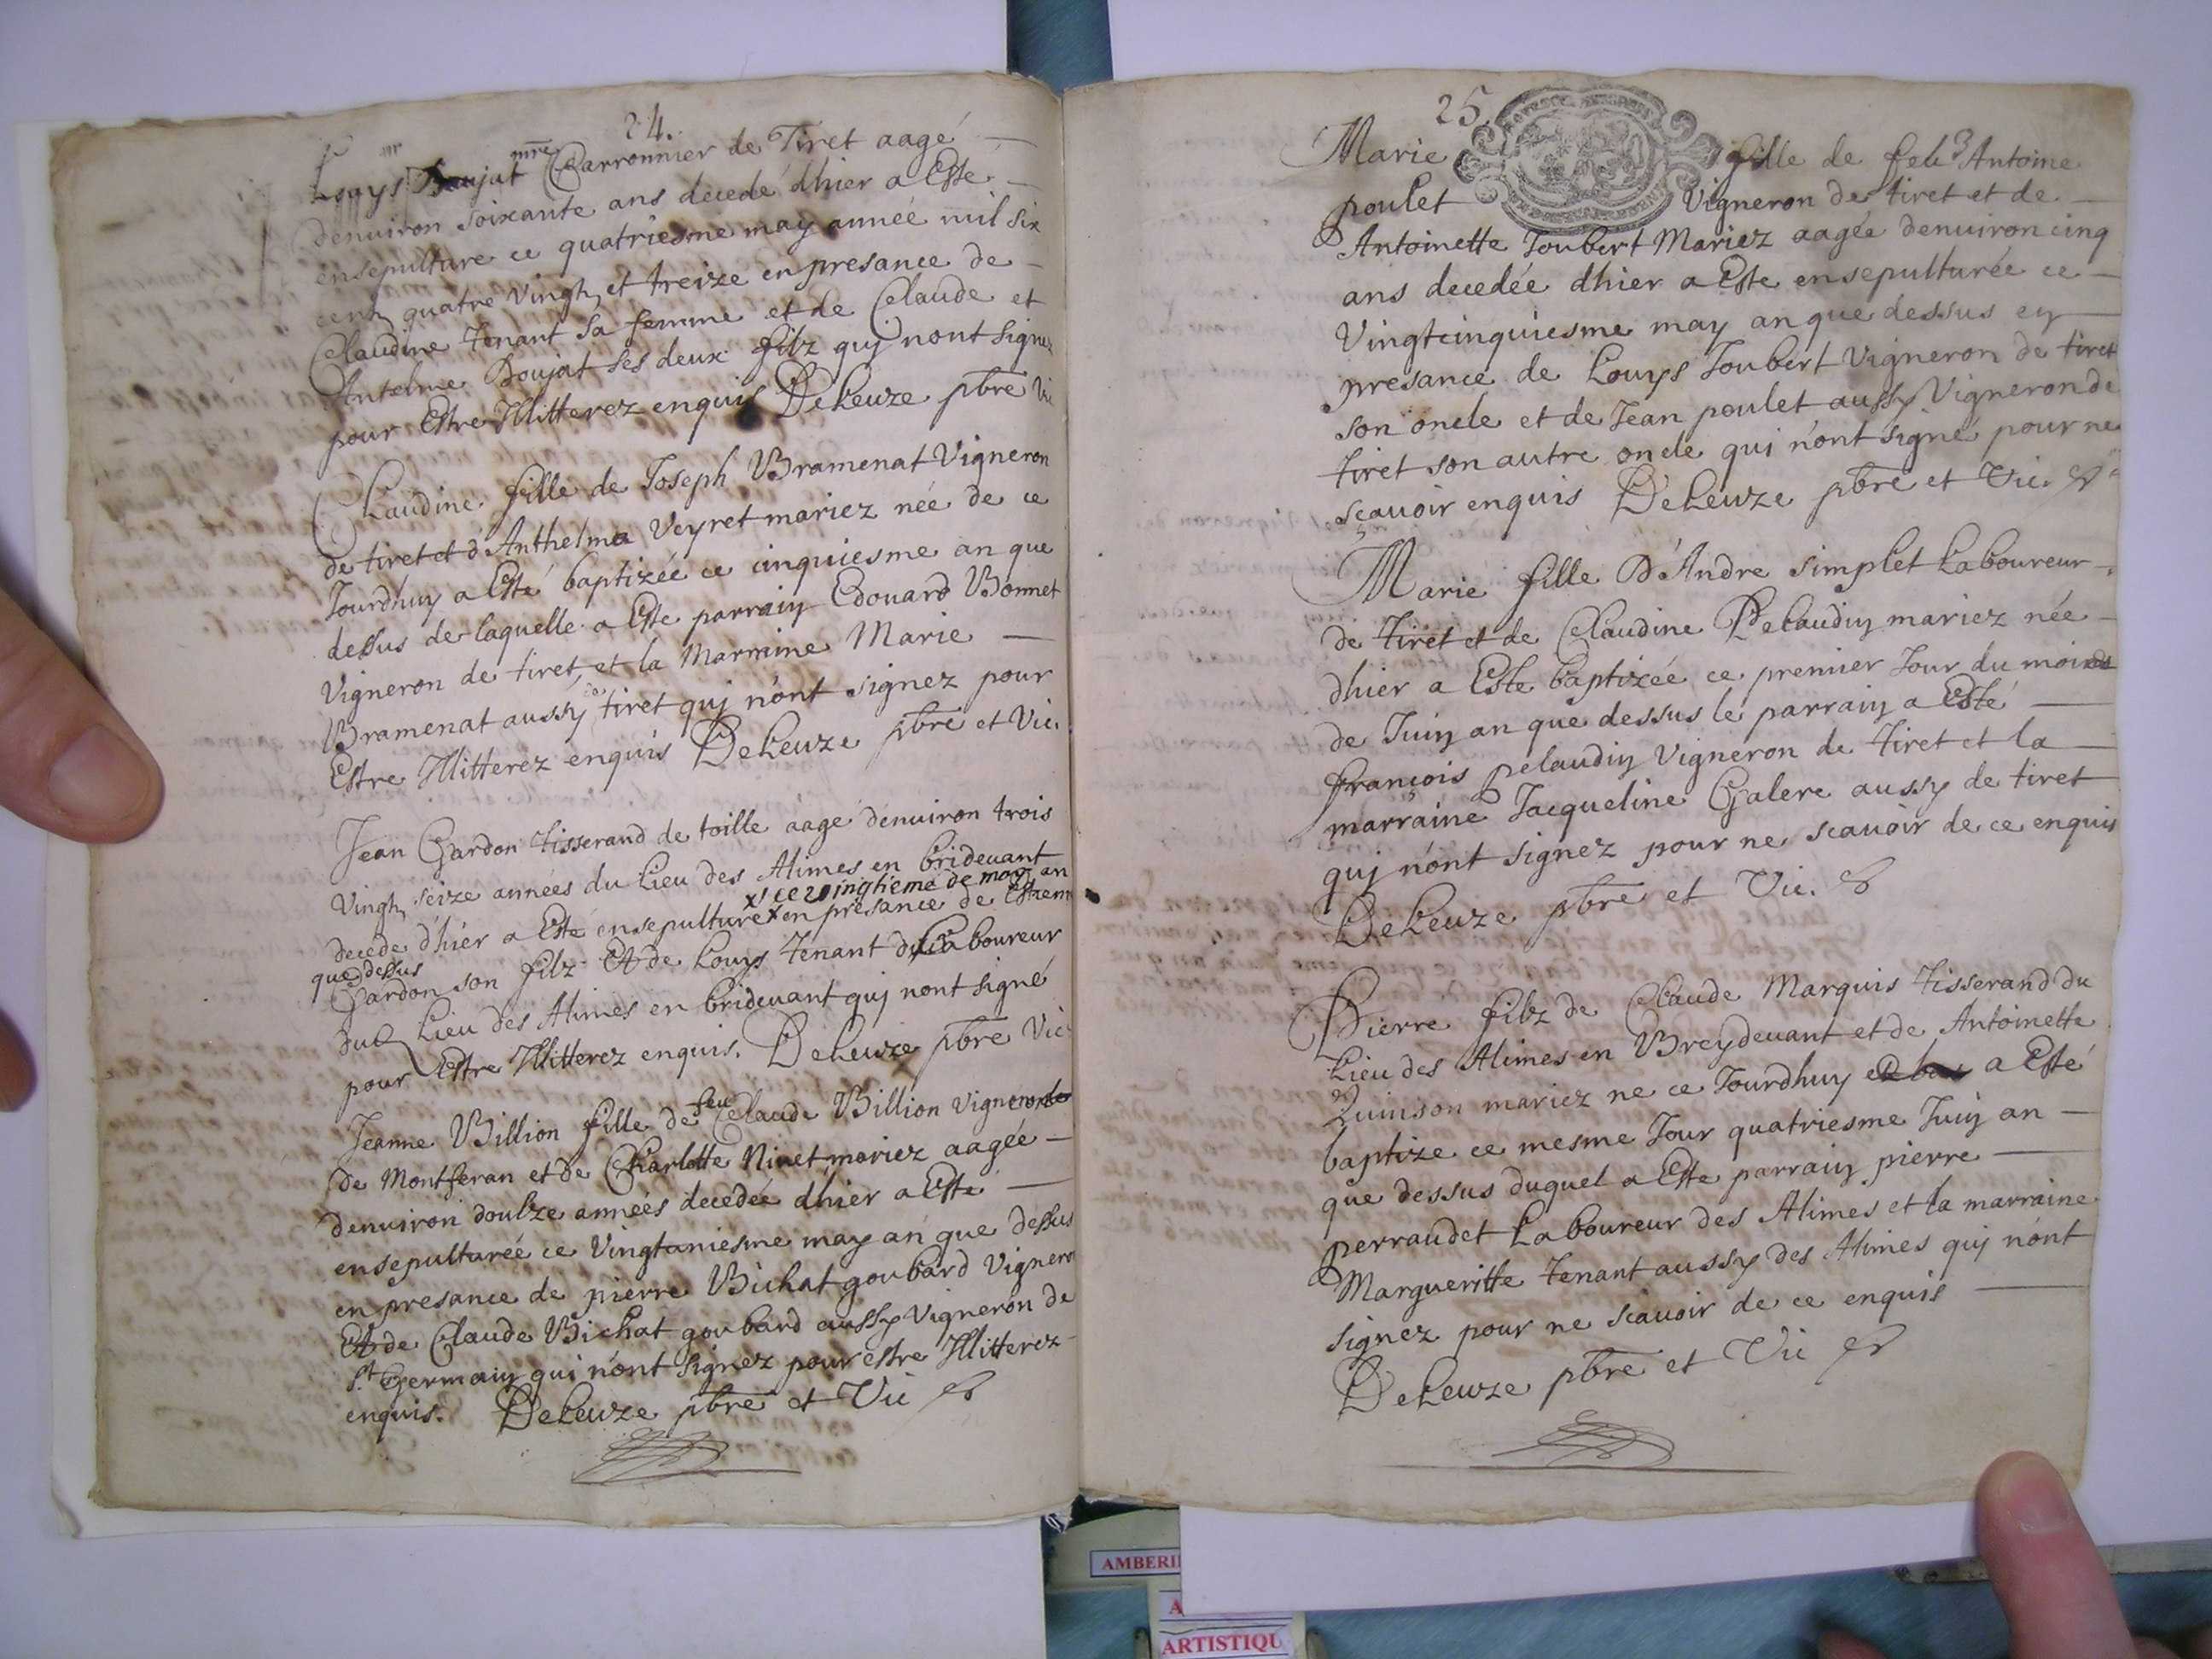 24.
Louys Boujat mre Charronnier de Tiret aagé
denuiron soixante ans decedé dhier a Esté
ensepulture ce quatriesme may année mil six
cent quatre vingh et treize en presance de
Claudine Tenant sa femme et de Claude et
Antelme Boujat ses deux filz quj nont signez
pour Estre Illitterez enquis DeLeuze pbre Vic
Claudine fille de Joseph Bramenat Vigneron
de tiret et d'Anthelma Veyret mariez née de ce
Jourdhuy a Esté baptizée ce cinquiesme an que
dessus de laquelle a Este parrain Edouard Bonnet
Vigneron de tiret, et la Marraine Marie
Bramenat aussy de tiret quj n'ont signez pour
Estre Illitterez enquis DeLeuze pbre et Vic.
Jean Gardon tisserand de toille aagé denuiron trois
Vingh seize années du Lieu des Alimes en bridevant
x ce vingtieme de may an
decede d'hier a Esté ensepulture x en presance de Estienne
que dessus
Gardon son filz Et de Louys Tenant Laboureur
dud Lieu des Alimes en bridevant quj nont signé
pour Estre Illitterez enquis. DeLeuze pbre Vic
Jeanne Billion fille de feu Claude Billion vigneron
de Montferan et de Charlotte Niuet mariez aagée
denuiron doulze années decedée dhier a Esté
ensepulturée ce Vingtuniesme may an que dessus
en presance de pierre Bichat goubard Vigneron
Et de Claude Bichat goubard aussy Vigneron de
St Germain qui n'ont signez pour estre Illitterez
enquis. DeLeuze pbre et Vic
25.
Marie fille de feu Antoine
poulet Vigneron de tiret et de
Antoinette Joubert Mariez aagée denuiron cinq
ans decedée dhier a Este ensepulturée ce
Vingtcinquiesme may an que dessus en
presance de Louys Joubert Vigneron de tiret
son oncle et de Jean poulet aussy Vigneron de
tiret son autre oncle qui n'ont signé pour ne
scauoir enquis DeLeuze pbre et Vic.
Marie fille D'Andre simplet Laboureur
de tiret et de Claudine Pelaudin mariez née
dhier a Este baptizée ce premier Jour du mois
de Juin an que dessus le parrain a Esté
françois pelaudin Vigneron de tiret et la
marraine Jacqueline Galere aussy de tiret
quj n'ont signez pour ne scauoir de ce enquis
DeLeuze pbre et Vic.
Pierre filz de Claude Marquis tisserand du
Lieu des Alimes en Breydevant et de Antoinette
Quinson mariez ne ce Jourdhuy a Esté
baptize ce mesme Jour quatriesme Juin an
que dessus duquel a Este parrain pierre
perraudet Laboureur des Alimes et la marraine
Margueritte Tenant aussy des Alimes quj n'ont
signez pour ne scauoir de ce enquis
DeLeuze pbre et Vic
AMBERI
A
ARTISTIQU